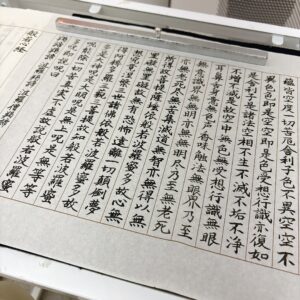 蘊皆空度一切苦厄舎利子色不異空空不
異色色即是空空即是色受想行識亦復如
是舎利子是諸法空相不生不滅不垢不浄
不増不減是故空中無色無受想行識無眼
耳鼻舌身意無色声香味触法無眼界乃至
無意識界無無明亦無無明尽乃至無老死
亦無老死尽無苦集滅道無智亦無得以無
所得故菩提薩埵依般若波羅蜜多故心無
罣礙無罣礙故無有恐怖遠離一切顛倒夢
想究竟涅槃三世諸佛依般若波羅蜜多故
得阿耨多羅三藐三菩提故知般若波羅蜜
多是大神呪是大明呪是無上呪是無等等
呪能除一切苦真実不虚故説般若波羅蜜
多呪即説呪曰
般若心経